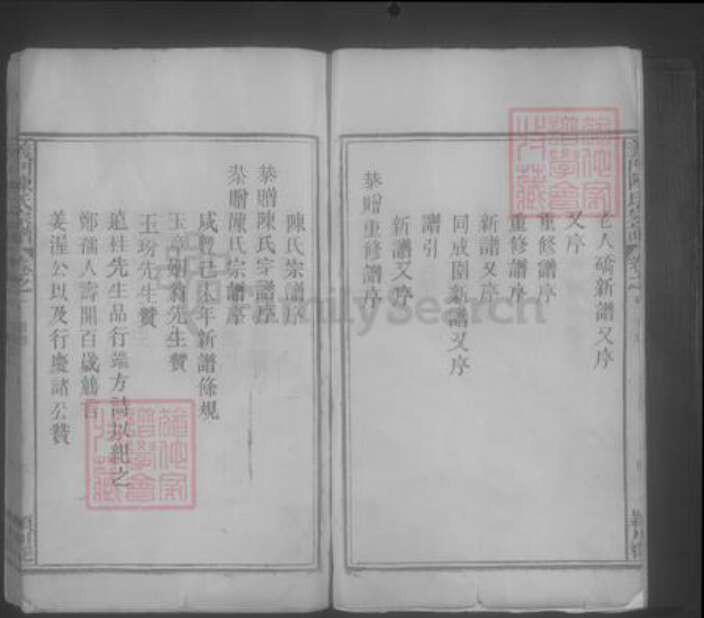 老人礄新譜又序
又序
重修譜序
重修譜序
新譜又序
同成園新譜又序
譜引
新譜又序
恭贈重修譜序
陳氏宗譜序
恭贈陳氏宗譜序
恭贈陳氏宗譜序
咸豐己未年新譜條規
先生贊
玉玢先生贊
先生品行端方詩以紀之
鄭孺人壽開百歲
姜渥公以及行慶諸公贊
義門陳氏宗譜
卷之
FamilySearch